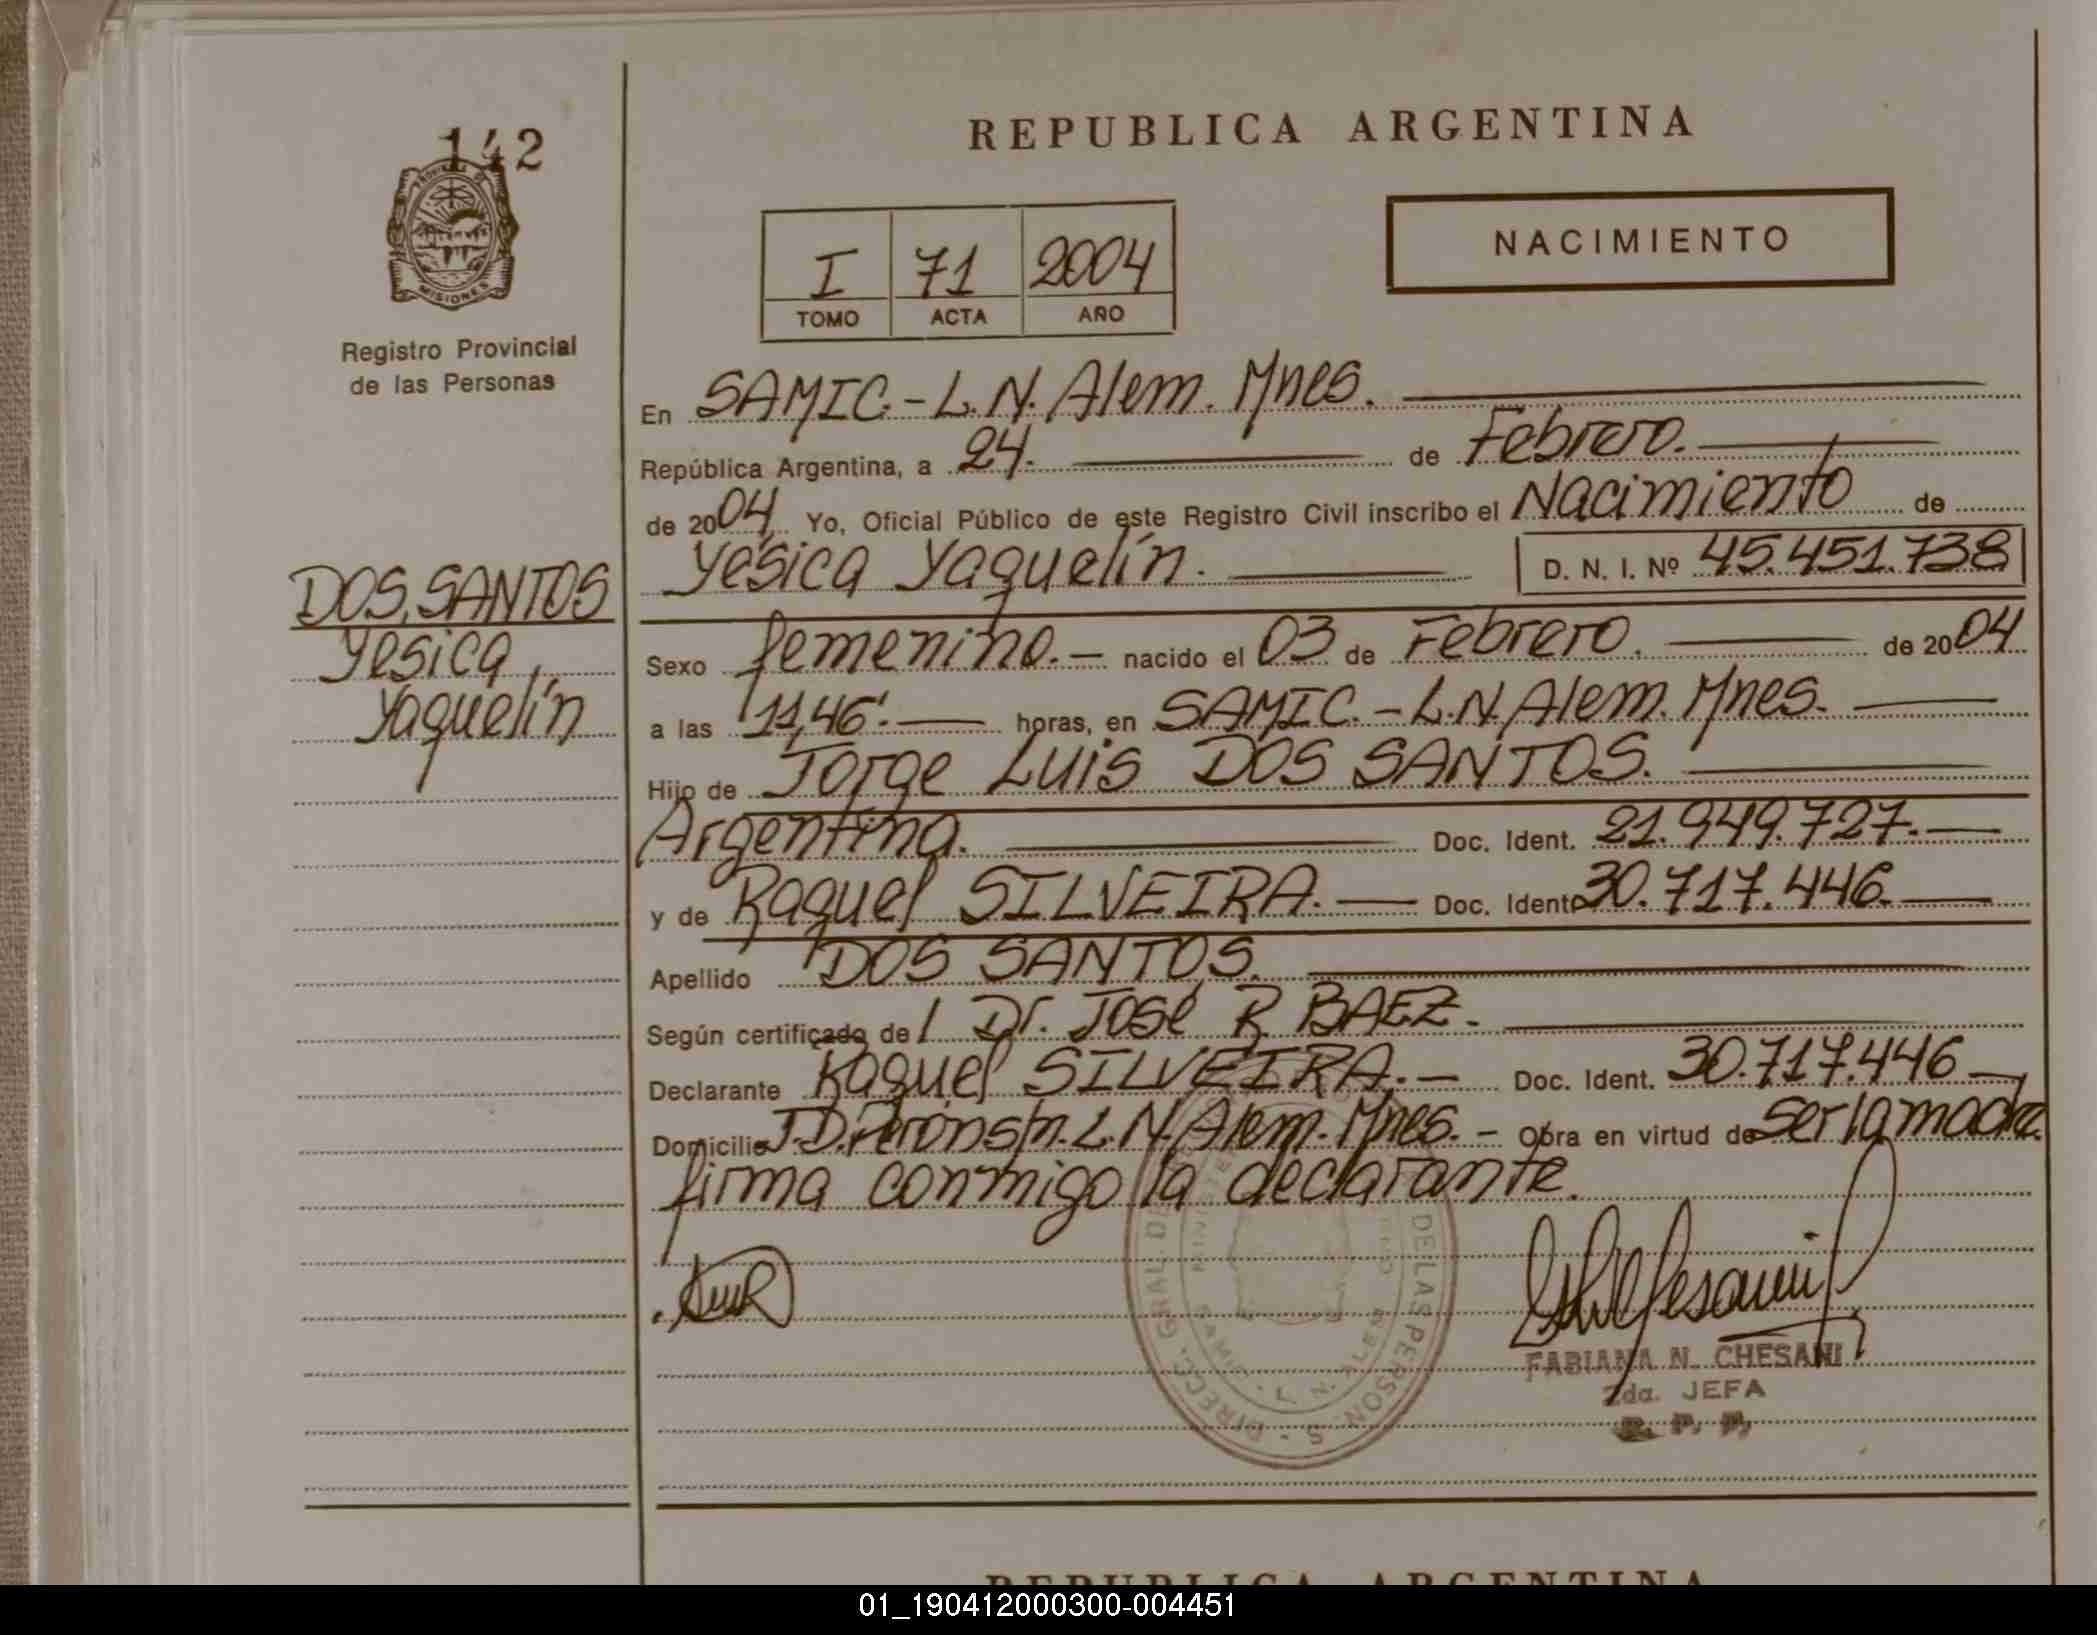 142
PROVINCIA DE
MISIONES
Registro Provincial
de las Personas
DOS SANTOS
Yesica
Yaquelín
REPUBLICA ARGENTINA
NACIMIENTO
I 71 2004
TOMO ACTA AÑO
En SAMIC.-L.N.Alem. Mnes.
República Argentina, a 24. de Febrero.
de 2004 Yo, Oficial Público de este Registro Civil inscribo el Nacimiento de
Yésica Yaquelín. D. N. I. Nº 45.451.738
Sexo femenino.- nacido el 03 de Febrero. de 2004
a las 11,46'.- horas, en SAMIC.-L.N.Alem. Mnes.
Hijo de Jorge Luis DOS SANTOS.
Argentina. Doc. Ident. 21.949.727.-
y de Raquel SILVEIRA.- Doc. Ident. 30.717.446.-
Apellido DOS SANTOS.
Según certificado de l Dr. José R BAEZ.
Declarante Raquel SILVEIRA.- Doc. Ident. 30.717.446-
Domicilio J.D.Perón s/n. L.N.Alem. Mnes.- Obra en virtud de ser la madre
firma conmigo la declarante.
DIRECC. GRAL. DE DE LAS PERSON.
N. ALEM
FABIANA N. CHESANI
2da. JEFA
R. P. P.
REPUBLICA ARGENTINA
01_190412000300-004451